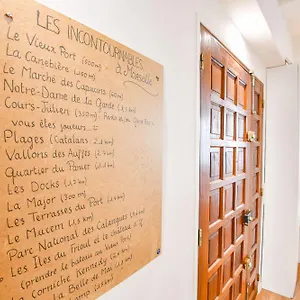 LES INCONTOURNABLES
de Marseille
Le Vieux Port (600m)
La Canebière (450m)
Le Marché des Capucins (600m)
Notre-Dame de la Garde
Cours-Julien (300m)
vous êtes joueurs
Plages (Catalans: 2.2 km)
Vallons des Auffes
Quartier du Panier
Les Docks
La Major
Les Terrasses du Port
Le Mucem
Parc National des Calanques
Les Iles du Frioul et le château d'if
(prendre le bateau au Vieux Port)
Corniche Kennedy
La Belle de Mai